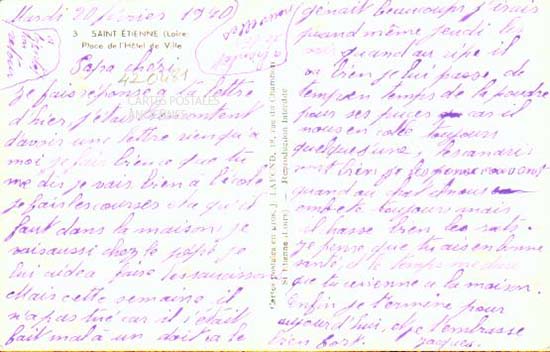 Mardi 20 février 1940
3 SAINT ÉTIENNE (Loire)
Place de l'Hôtel de Ville
Papa chéri
420481
CARTES POSTALES
ANCIENNES
Je fais réponse a ta lettre
d'hier, j'étais content
d'avoir une lettre rien qu'a
moi, je fais bien ce que tu
me dis, je vais bien à l'école
je fais les courses et qu'il
faut dans la maison, je
vais aussi chez le pépé, je
lui aide a faire les saucissons
Mais cette semaine il
n'a pas tué car il s'était
fait mal à un doigt, a le
Cartes postales en gros, J. LAFOND, 18, rue du Chambon
St Etienne (Loire) - Reproduction Interdite
gênait beaucoup, j'irais
quand même jeudi le
voir, quand au
ou bien je lui passe de
temps en temps de la poudre
pour ses puces car il
nous en colle toujours
quelques une, les canaris
vont bien,
quand au chat il nous
embete toujours mais
il chasse bien les rats.
Je pense que tu ais en bonne
santé, et le temps me dure
que tu vienne a la maison.
Enfin je termine pour
aujourd'hui, et je t'embrasse
bien fort. Jacques.